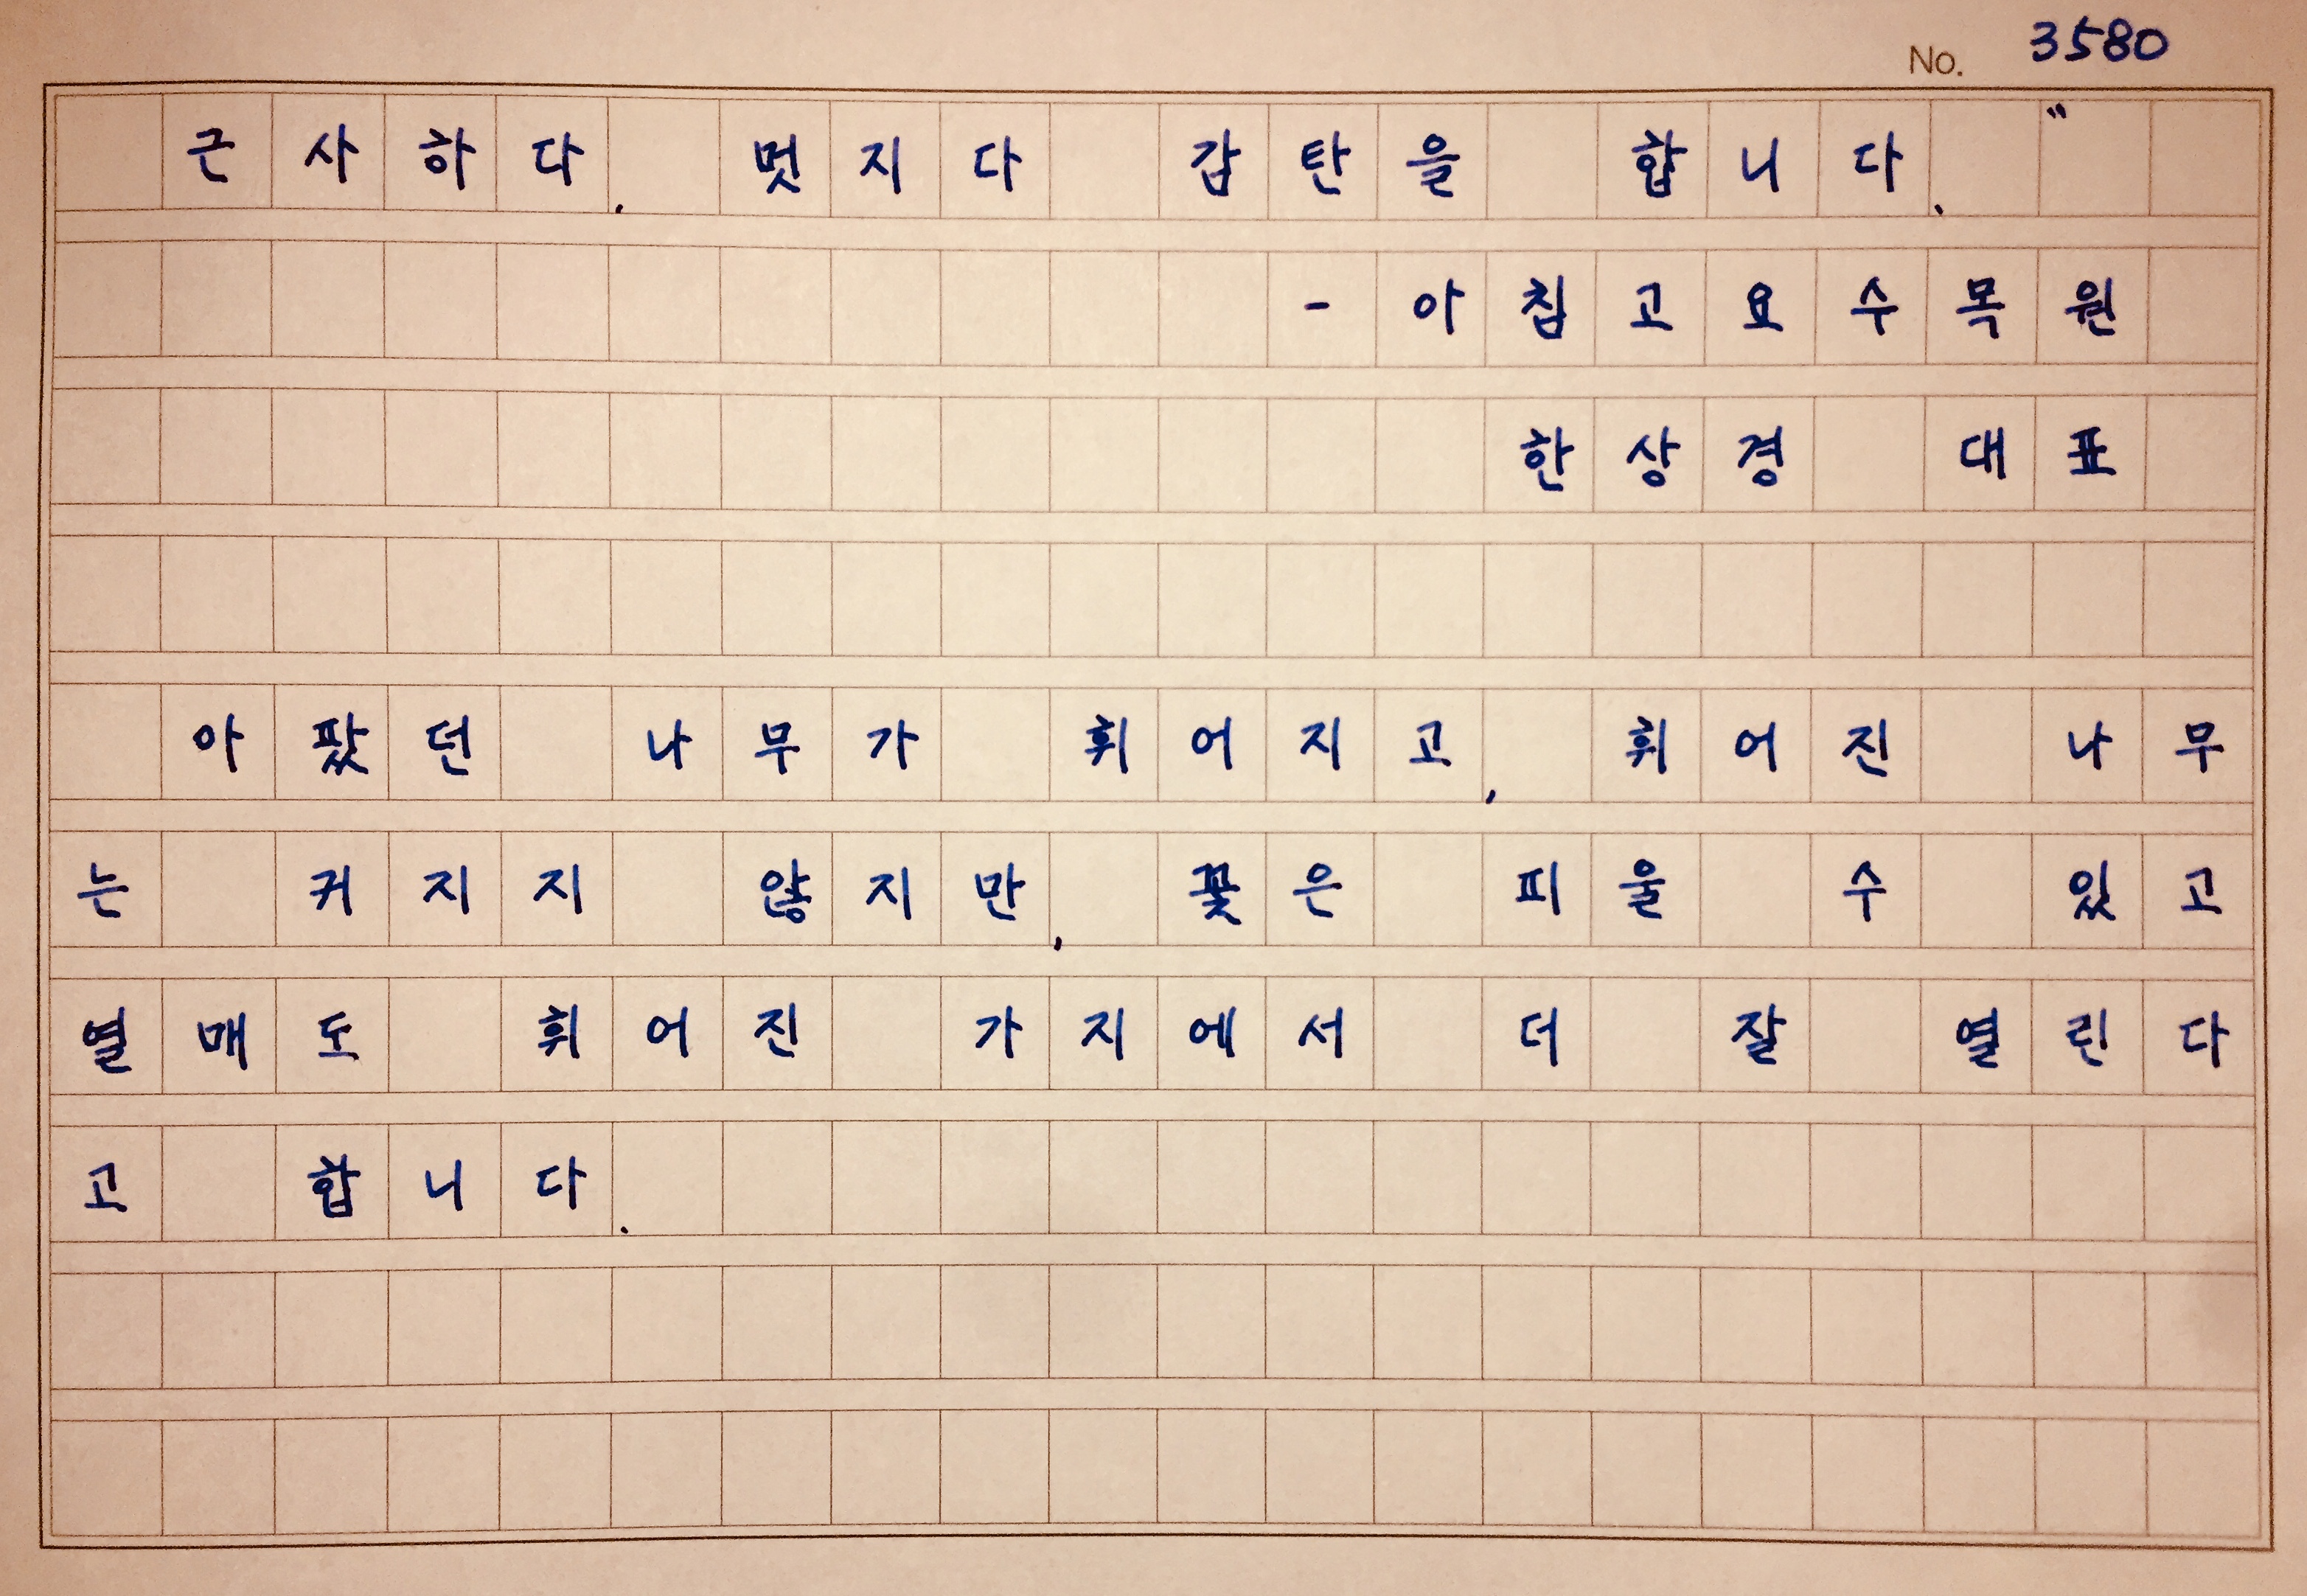 No. 3580
근사하다. 멋지다 감탄을 합니다."
- 아침고요수목원
한상경 대표
아팠던 나무가 휘어지고, 휘어진 나무
는 커지지 않지만, 꽃은 피울 수 있고
열매도 휘어진 가지에서 더 잘 열린다
고 합니다.